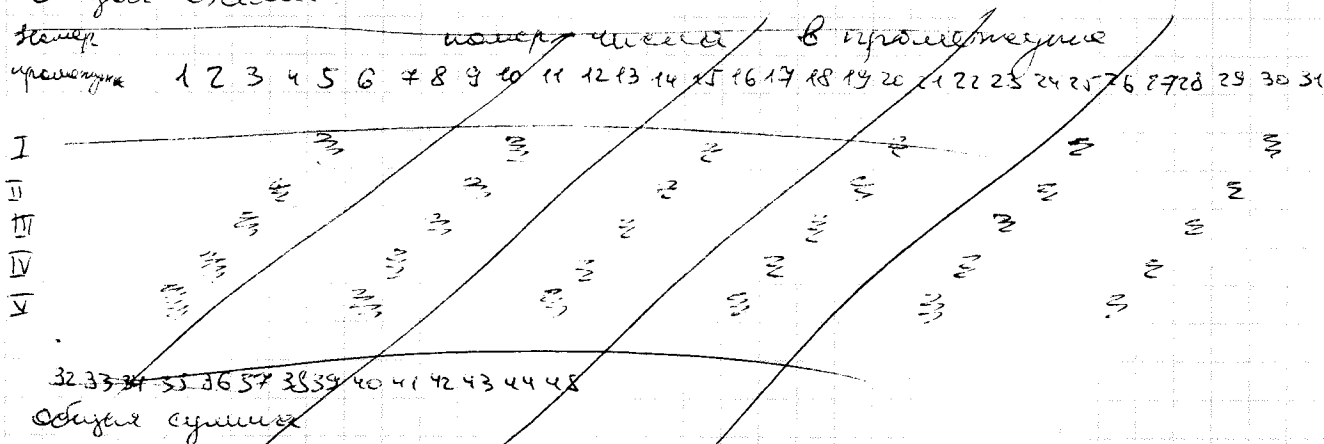 Номер номер числа в промежутке
промежутка 1 2 3 4 5 6 7 8 9 10 11 12 13 14 15 16 17 18 19 20 21 22 23 24 25 26 27 28 29 30 31
I
II
III
IV
V
32 33 34 35 36 37 38 39 40 41 42 43 44 45
общая сумма